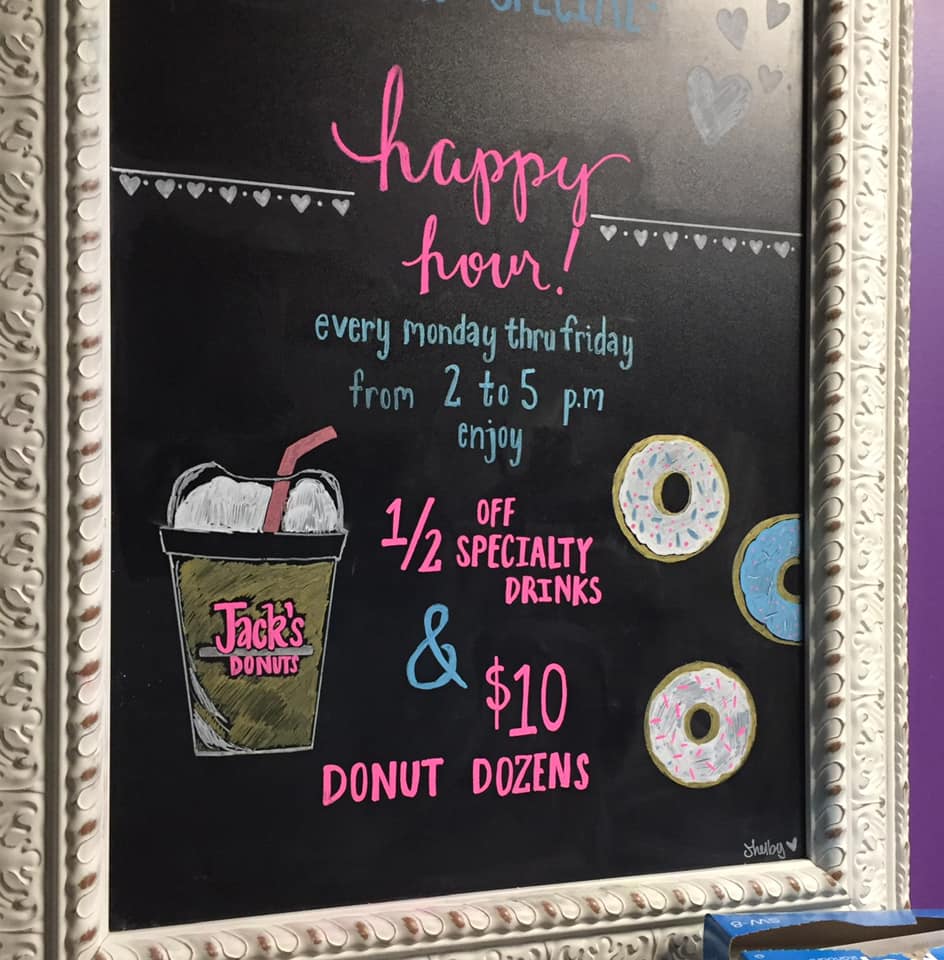 SPECIAL:
happy
hour!
every monday thru friday
from 2 to 5 p.m
enjoy
1/2 OFF
SPECIALTY
DRINKS
&
$10
DONUT DOZENS
Jack's
DONUTS
Shelby
SW-8